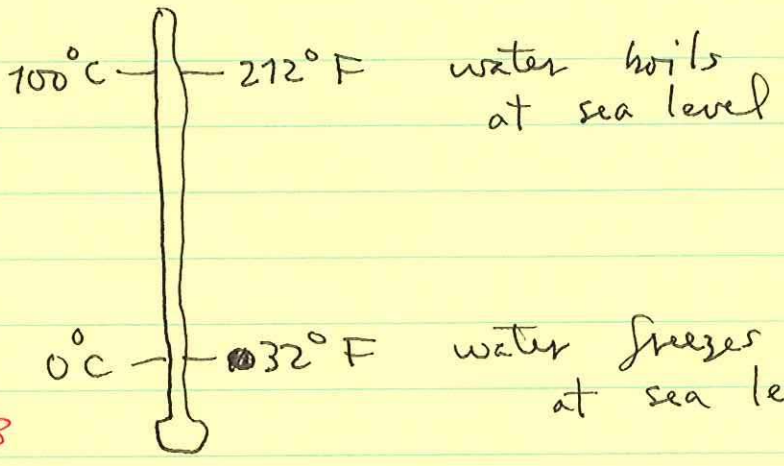 100°C 212°F water boils
at sea level
0°C 32°F water freezes
at sea le